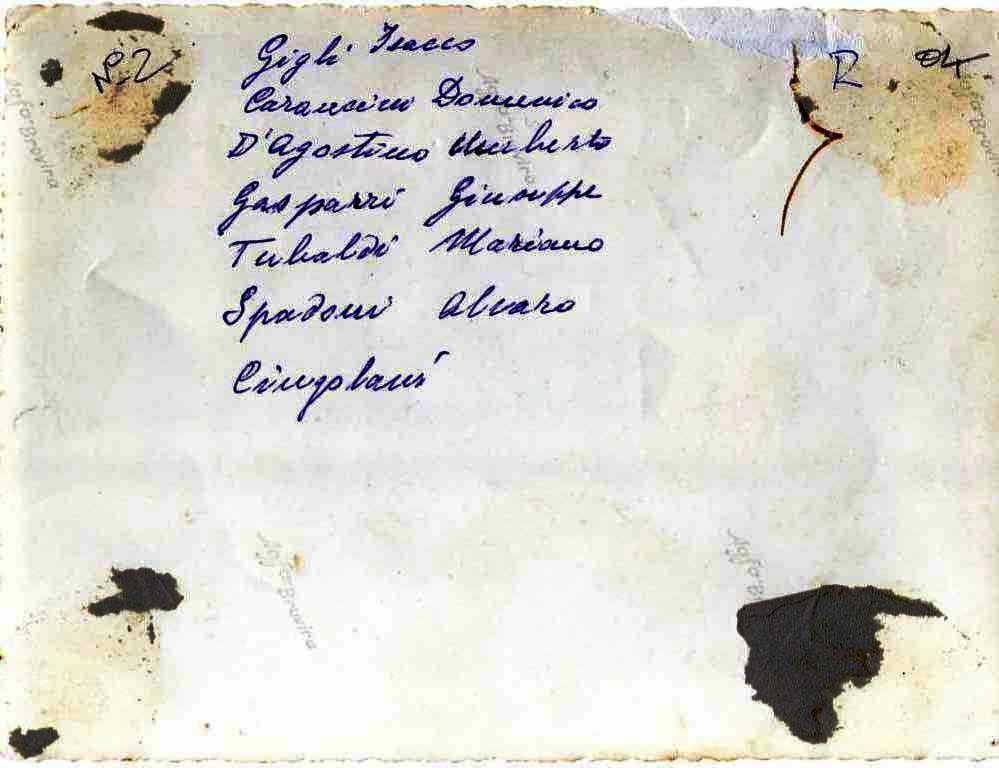 N° 2
R
OK
Gigli Isacco
Carancini Domenico
D'Agostino Umberto
Gasparri Giuseppe
Tubaldi Mariano
Spadoni Alvaro
Cingolani
Agfa-Brovira
Agfa-Brovira
Agfa-Brovira
Agfa-Brovira